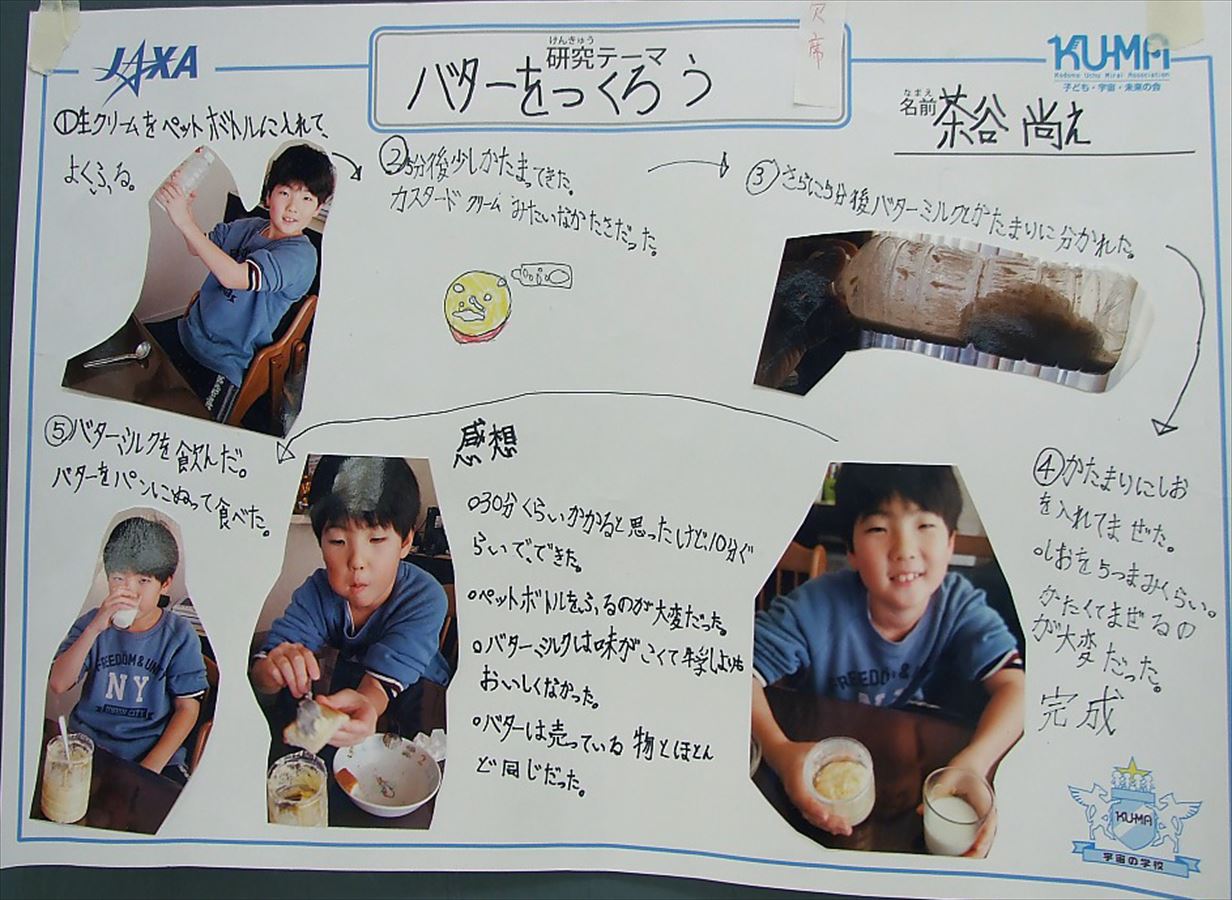 JAXA
けんきゅう
研究テーマ
バターをつくろう
欠席
KU-MA
Kodomo Uchu Mirai Association
子ども・宇宙・未来の会
なまえ
名前 茶谷 尚
①生クリームをペットボトルに入れて、
よくふる。
②5分後少しかたまってきた。
カスタードクリームみたいなかたさだった。
③さらに5分後バターミルクとかたまりに分かれた。
④かたまりにしお
を入れてまぜた。
○しおを5つまみくらい。
かたくてまぜるの
が大変だった。
完成
⑤バターミルクを飲んだ。
バターをパンにぬって食べた。
感想
○30分くらいかかると思ったけど、10分ぐ
らいでできた。
○ペットボトルをふるのが大変だった。
○バターミルクは味がこくて牛乳よりも
おいしくなかった。
○バターは売っている物とほとん
ど同じだった。
FREEDOM & UNITY
NY
FREEDOM & UN
KU-MA
宇宙の学校